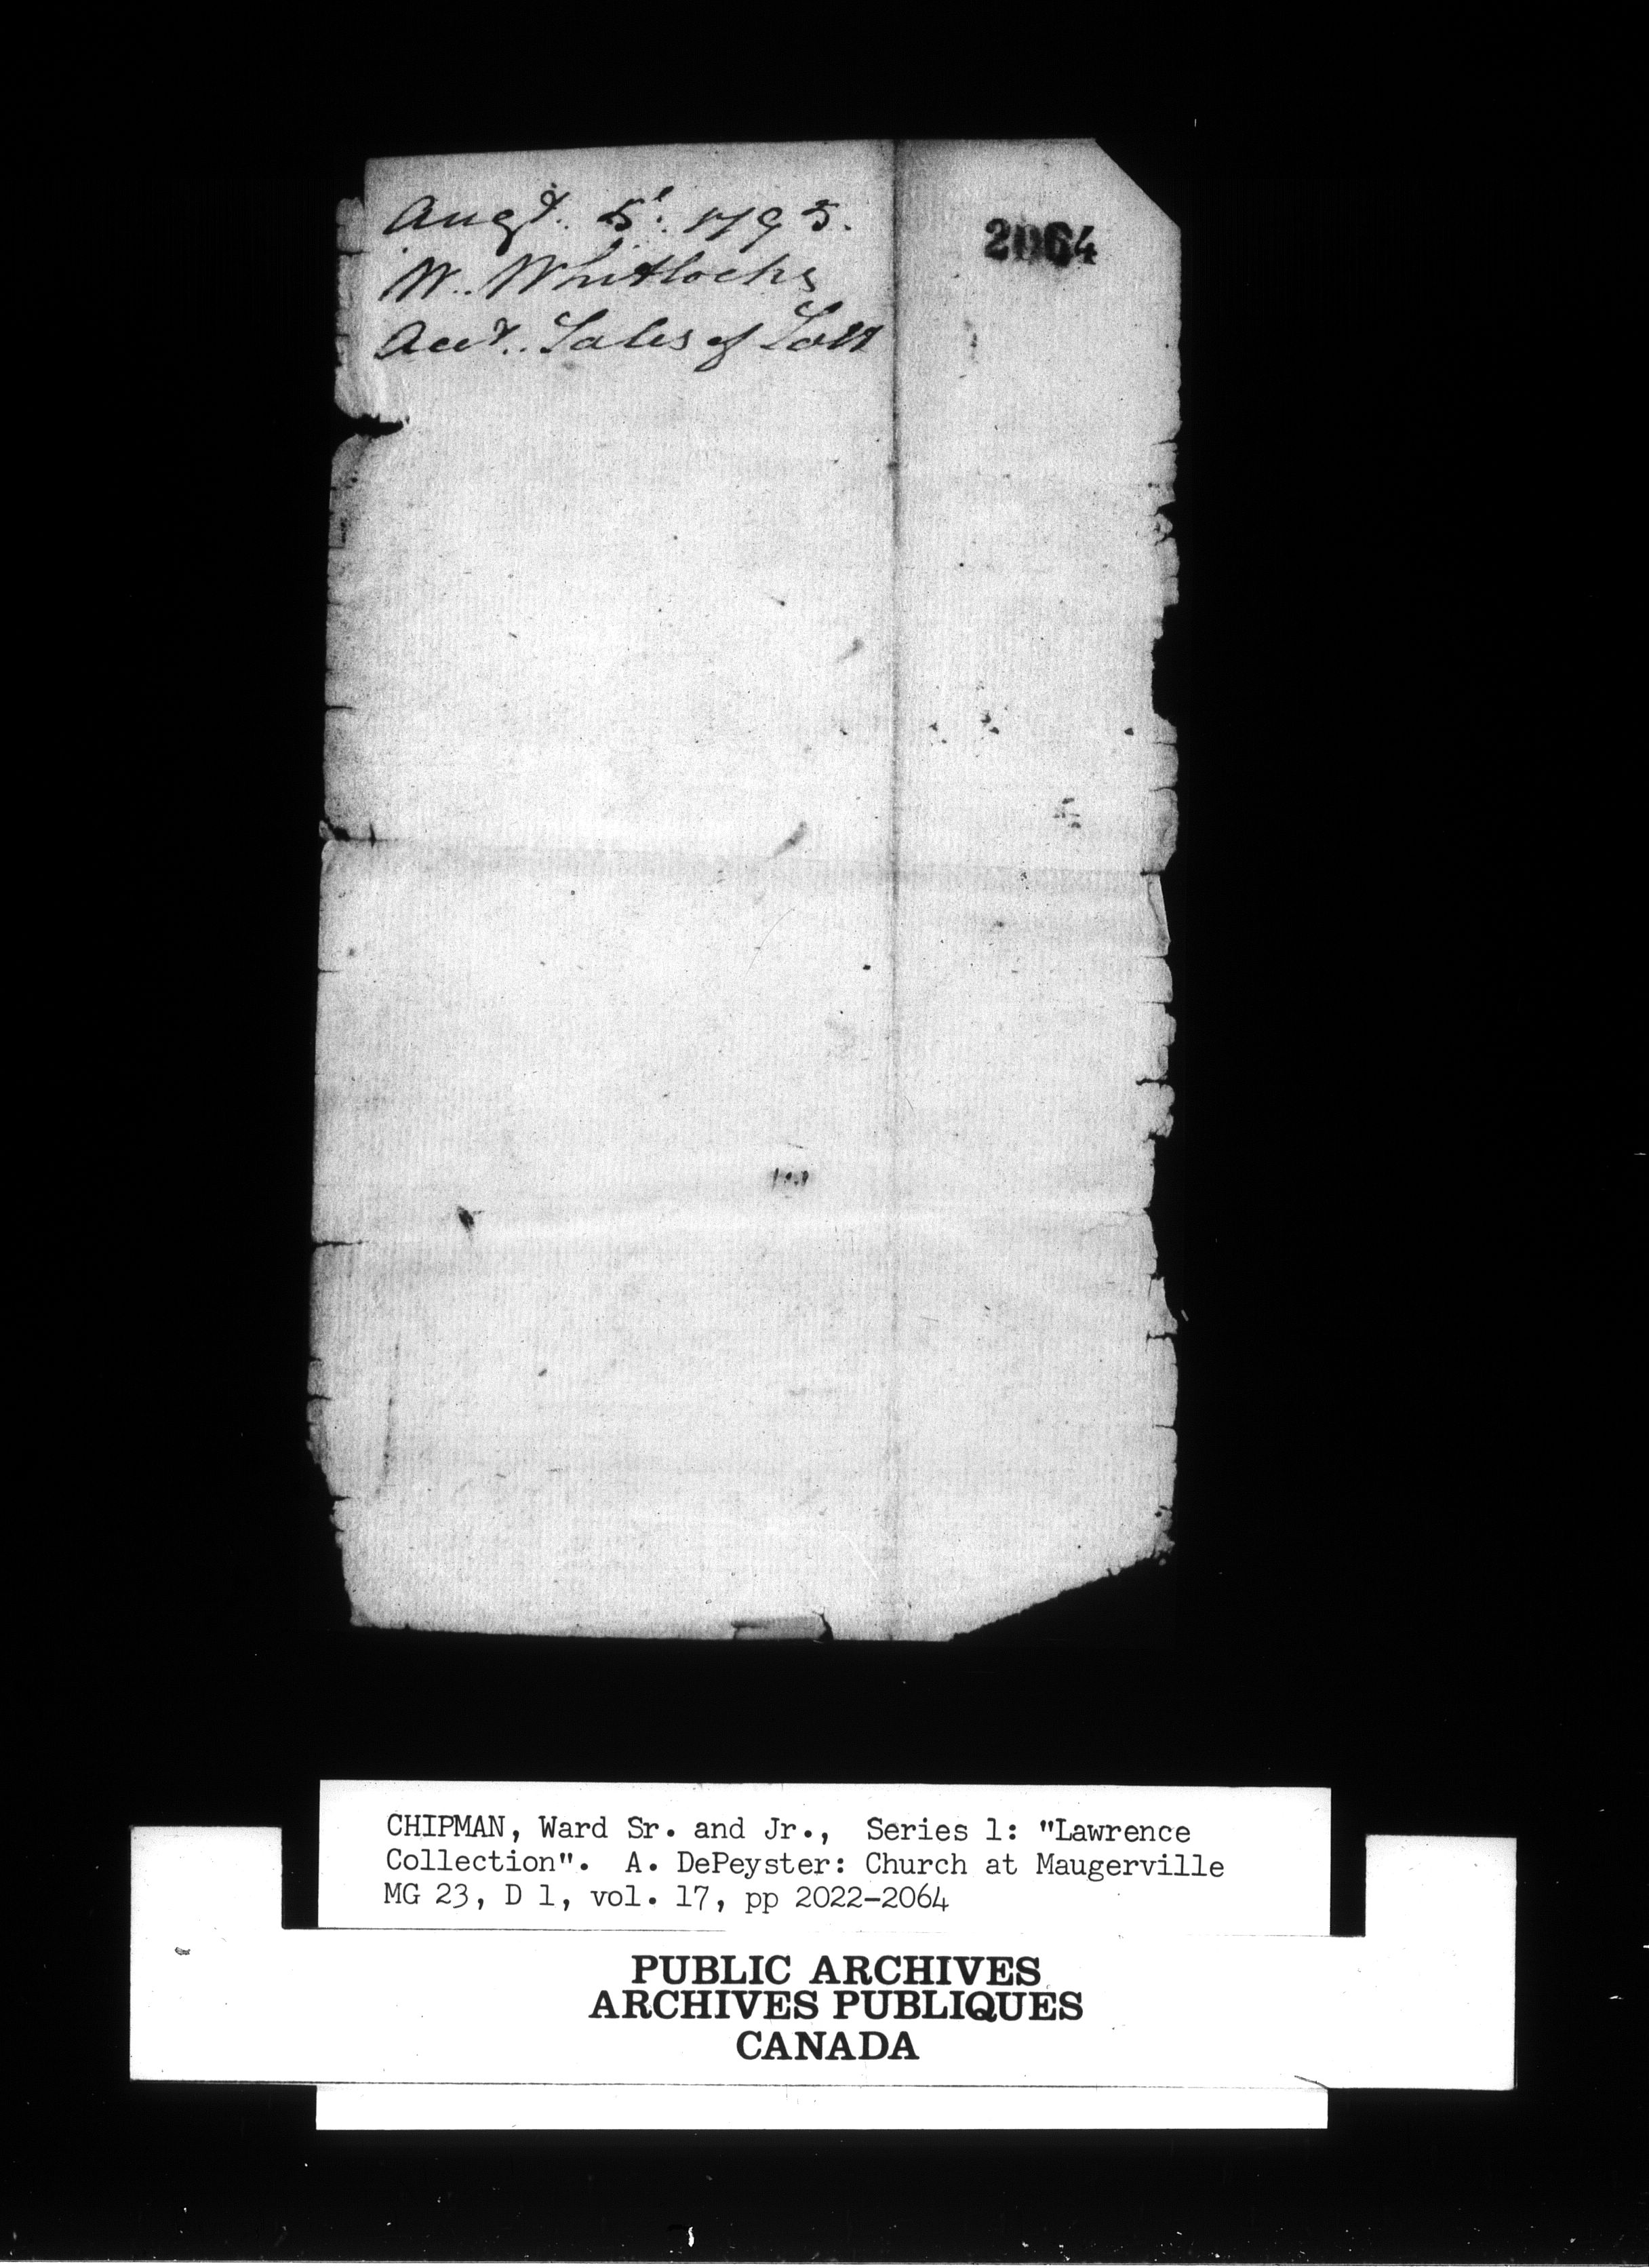 Augt. 5t. 1795.
W. Whitlocks
Acct. Sales of Salt
2064
CHIPMAN, Ward Sr. and Jr., Series 1: "Lawrence
Collection". A. DePeyster: Church at Maugerville
MG 23, D 1, vol. 17, pp 2022-2064
PUBLIC ARCHIVES
ARCHIVES PUBLIQUES
CANADA